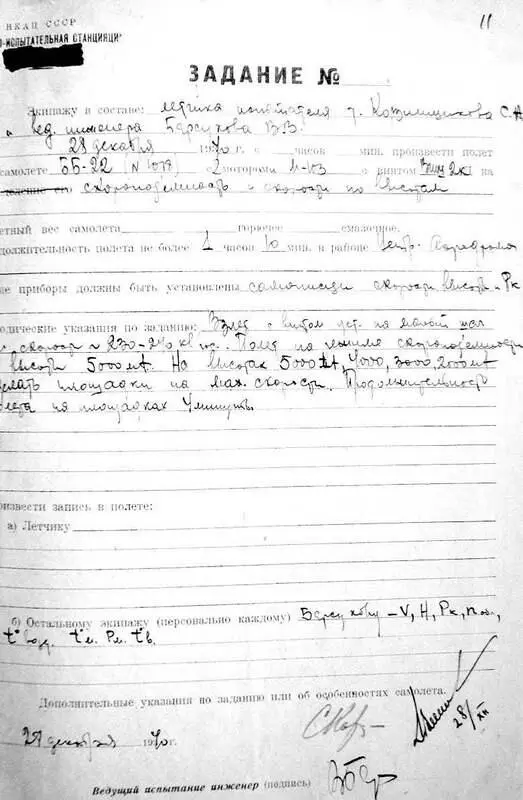 НКАП СССР
О-ИСПЫТАТЕЛЬНАЯ СТАНЦИЯ
11
ЗАДАНИЕ №
Экипажу в составе: летчика испытателя т. С.А
и вед. инженера Барсукова В.В.
28 декабря 1940 г. с часов мин. произвести полет
самолете ББ-22 (N 1019) с 2 моторами М-103 с винтом 2К на
скороподъемность и скорости по высотам
етный вес самолета горючее смазочное.
одолжительность полета не более 1 часов 10 мин. в районе Центр. Аэродрома
ие приборы должны быть установлены самописцы скорости, высоты, Рк
одические указания по заданию: Взлет с винтом уст. на малый шаг
скорость 230-240 км/час. Полет на режиме скороподъемности
высоты 5000 mt. На высотах 5000 mt, 4000, 3000, 2000 mt
делать площадки на мах. скорости. Продолжительность
лета на площадках 4 минуты.
оизвести запись в полете:
а) Летчику
б) Остальному экипажу (персонально каждому) Барсукову – V, H, Рк,
t° вод. t°м. Рм. t°в.
Дополнительные указания по заданию или об особенностях самолета.
28/XII
27 декабря 1940 г.
Ведущий испытание инженер (подпись)